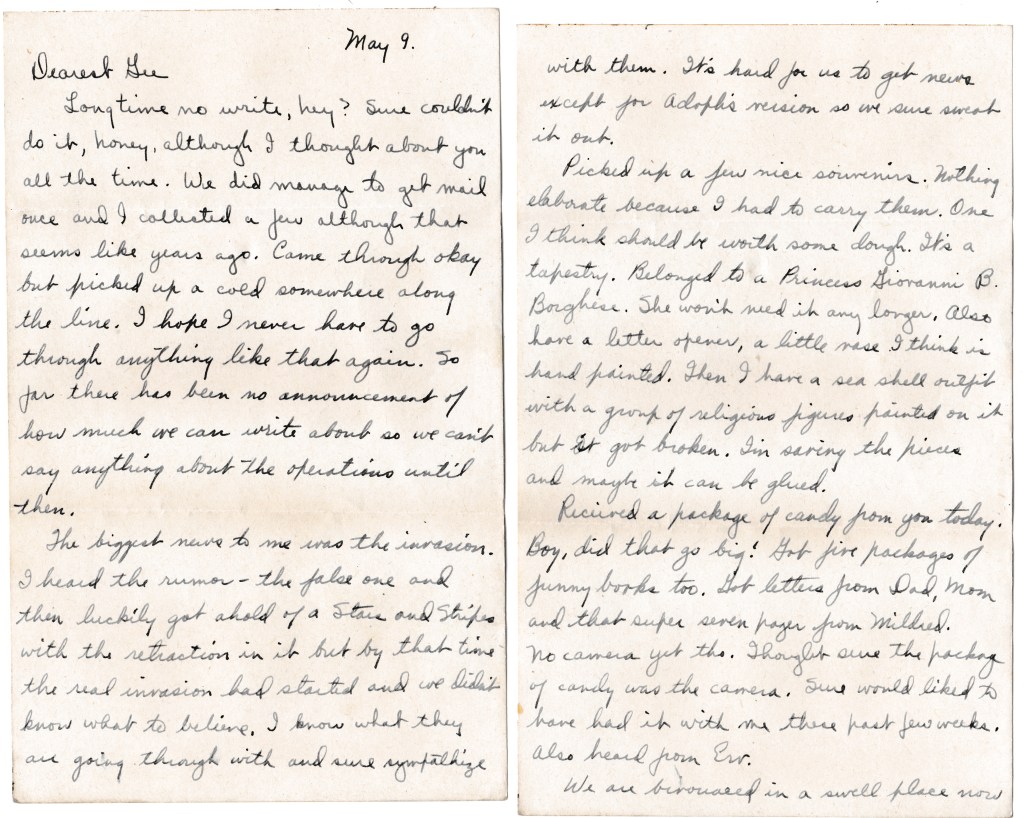 May 9.
Dearest Gee
Longtime no write, hey? Sure couldn't
do it, honey, although I thought about you
all the time. We did manage to get mail
once and I collected a few although that
seems like years ago. Came through okay
but picked up a cold somewhere along
the line. I hope I never have to go
through anything like that again. So
far there has been no announcement of
how much we can write about so we can't
say anything about the operations until
then.
The biggest news to me was the invasion.
I heard the rumor - the false one and
then luckily got ahold of a Stars and Stripes
with the retraction in it but by that time
the real invasion had started and we didn't
know what to believe. I know what they
are going through with and sure sympathize
with them. It's hard for us to get news
except for Adolph's version so we sure sweat
it out.
Picked up a few nice souvenirs. Nothing
elaborate because I had to carry them. One
I think should be worth some dough. It's a
tapestry. Belonged to a Princess Giovanni B.
Borghese. She won't need it any longer. Also
have a letter opener, a little vase I think is
hand painted. Then I have a sea shell outfit
with a group of religious figures painted on it
but it got broken. I'm saving the pieces
and maybe it can be glued.
Recieved a package of candy from you today.
Boy, did that go big! Got five packages of
funny books too. Got letters from Dad, Mom
and that super seven pager from Mildred.
No camera yet tho. Thought sure the package
of candy was the camera. Sure would liked to
have had it with me these past few weeks.
Also heard from Erv.
We are bivouaced in a swell place now